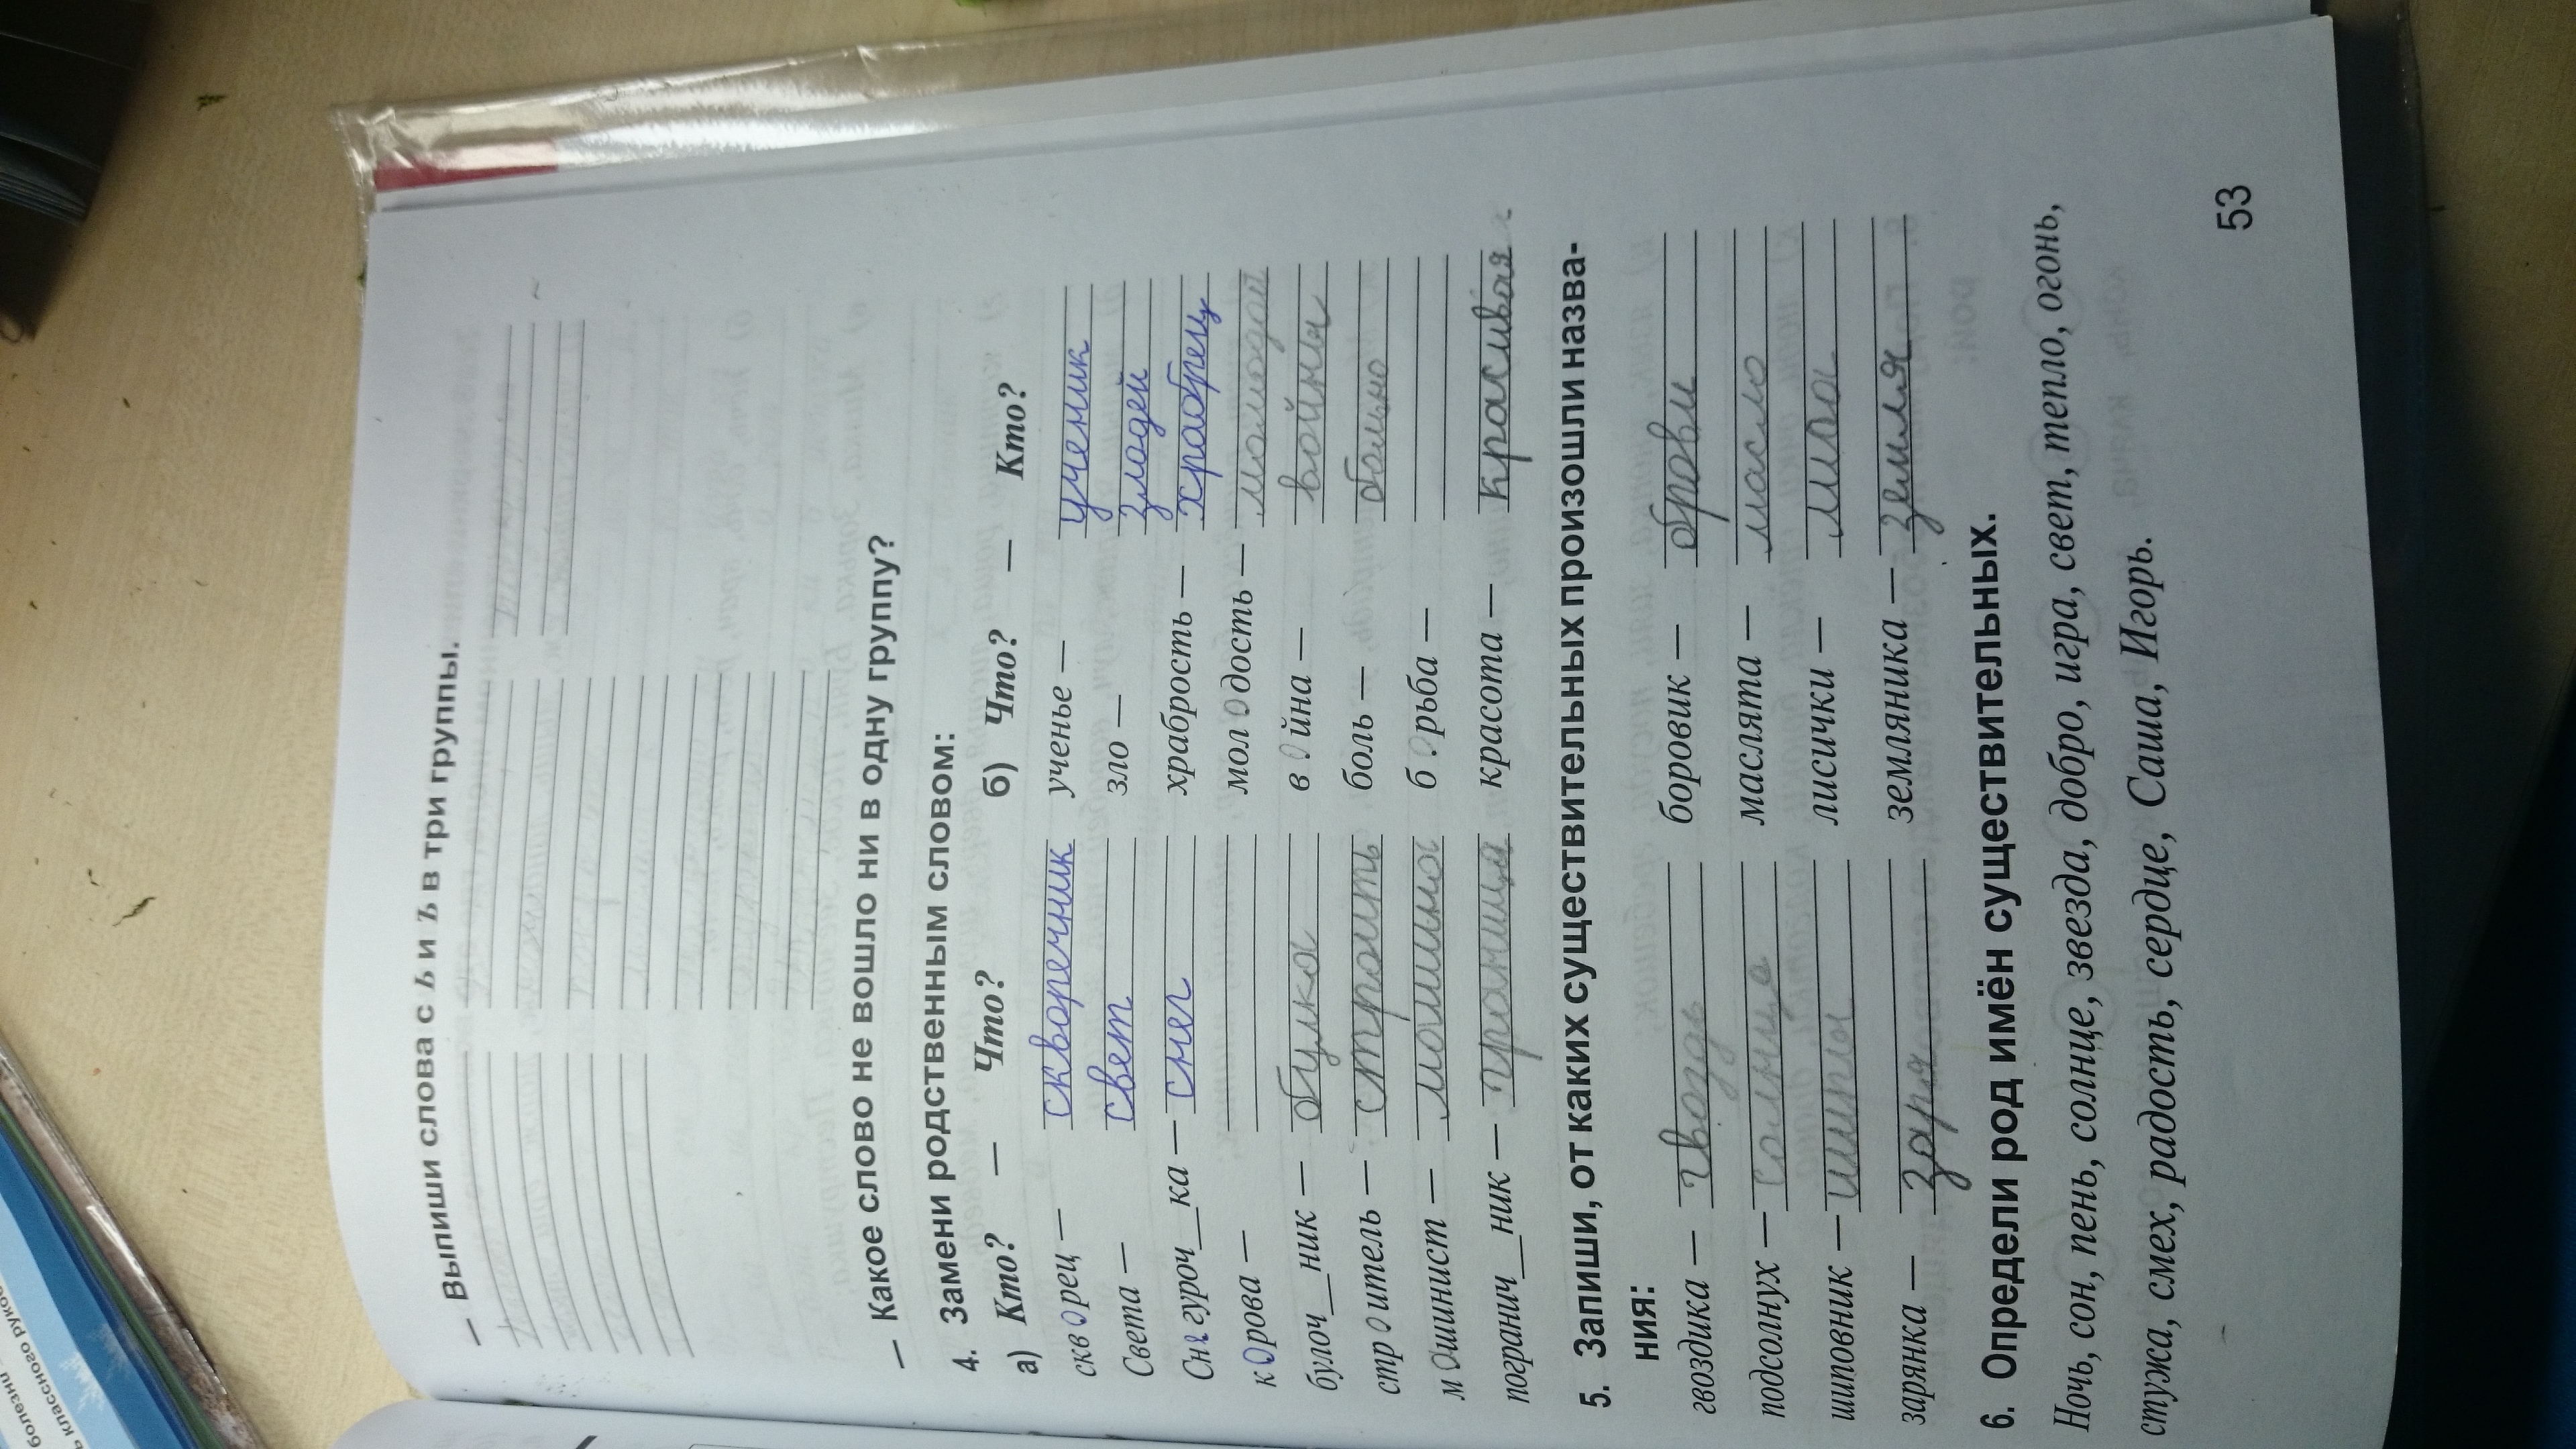 — Выпиши слова с ь и ъ в три группы.
— Какое слово не вошло ни в одну группу?
4. Замени родственным словом:
а) Кто? — Что? б) Что? — Кто?
скворец — скворечник ученье — ученик
Света — свет зло — злодей
Снегуроч__ка — снег храбрость — храбрец
корова — молодость — молодой
булоч__ник — булка война — войны
строитель — строить боль — больно
машинист — машина борьба —
погранич__ник — граница красота — красивая
5. Запиши, от каких существительных произошли назва-
ния:
гвоздика — гвоздь боровик — брови
подсолнух — солнце маслята — масло
шиповник — шипы лисички — лиса
зарянка — заря земляника — земля
6. Определи род имён существительных.
Ночь, сон, пень, солнце, звезда, добро, игра, свет, тепло, огонь,
стужа, смех, радость, сердце, Саша, Игорь.
53
болезни
классного руков